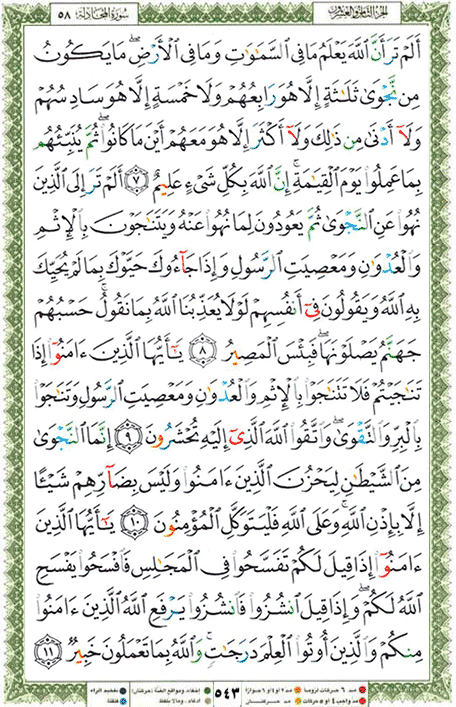 الجزء الثامن والعشرون سورة المجادلة ٥٨
أَلَمْ تَرَ أَنَّ ٱللَّهَ يَعْلَمُ مَا فِى ٱلسَّمَٰوَٰتِ وَمَا فِى ٱلْأَرْضِ ۖ مَا يَكُونُ
مِن نَّجْوَىٰ ثَلَٰثَةٍ إِلَّا هُوَ رَابِعُهُمْ وَلَا خَمْسَةٍ إِلَّا هُوَ سَادِسُهُمْ
وَلَآ أَدْنَىٰ مِن ذَٰلِكَ وَلَآ أَكْثَرَ إِلَّا هُوَ مَعَهُمْ أَيْنَ مَا كَانُوا۟ ۖ ثُمَّ يُنَبِّئُهُم
بِمَا عَمِلُوا۟ يَوْمَ ٱلْقِيَٰمَةِ ۚ إِنَّ ٱللَّهَ بِكُلِّ شَىْءٍ عَلِيمٌ ٧ أَلَمْ تَرَ إِلَى ٱلَّذِينَ
نُهُوا۟ عَنِ ٱلنَّجْوَىٰ ثُمَّ يَعُودُونَ لِمَا نُهُوا۟ عَنْهُ وَيَتَنَٰجَوْنَ بِٱلْإِثْمِ
وَٱلْعُدْوَٰنِ وَمَعْصِيَتِ ٱلرَّسُولِ وَإِذَا جَآءُوكَ حَيَّوْكَ بِمَا لَمْ يُحَيِّكَ
بِهِ ٱللَّهُ وَيَقُولُونَ فِىٓ أَنفُسِهِمْ لَوْلَا يُعَذِّبُنَا ٱللَّهُ بِمَا نَقُولُ ۚ حَسْبُهُمْ
جَهَنَّمُ يَصْلَوْنَهَا ۖ فَبِئْسَ ٱلْمَصِيرُ ٨ يَٰٓأَيُّهَا ٱلَّذِينَ ءَامَنُوٓا۟ إِذَا
تَنَٰجَيْتُمْ فَلَا تَتَنَٰجَوْا۟ بِٱلْإِثْمِ وَٱلْعُدْوَٰنِ وَمَعْصِيَتِ ٱلرَّسُولِ وَتَنَٰجَوْا۟
بِٱلْبِرِّ وَٱلتَّقْوَىٰ ۖ وَٱتَّقُوا۟ ٱللَّهَ ٱلَّذِىٓ إِلَيْهِ تُحْشَرُونَ ٩ إِنَّمَا ٱلنَّجْوَىٰ
مِنَ ٱلشَّيْطَٰنِ لِيَحْزُنَ ٱلَّذِينَ ءَامَنُوا۟ وَلَيْسَ بِضَآرِّهِمْ شَيْـًٔا
إِلَّا بِإِذْنِ ٱللَّهِ ۚ وَعَلَى ٱللَّهِ فَلْيَتَوَكَّلِ ٱلْمُؤْمِنُونَ ١٠ يَٰٓأَيُّهَا ٱلَّذِينَ
ءَامَنُوٓا۟ إِذَا قِيلَ لَكُمْ تَفَسَّحُوا۟ فِى ٱلْمَجَٰلِسِ فَٱفْسَحُوا۟ يَفْسَحِ
ٱللَّهُ لَكُمْ ۖ وَإِذَا قِيلَ ٱنشُزُوا۟ فَٱنشُزُوا۟ يَرْفَعِ ٱللَّهُ ٱلَّذِينَ ءَامَنُوا۟
مِنكُمْ وَٱلَّذِينَ أُوتُوا۟ ٱلْعِلْمَ دَرَجَٰتٍ ۚ وَٱللَّهُ بِمَا تَعْمَلُونَ خَبِيرٌ ١١
مد ٦ حركات لزوماً مد ٢ أو ٤ أو ٦ جوازاً إخفاء، ومواقع الغنة (حركتان) تفخيم الراء
مد واجب ٤ أو ٥ حركات مد حركتان ٥٤٣ إدغام، وما لا يلفظ قلقلة